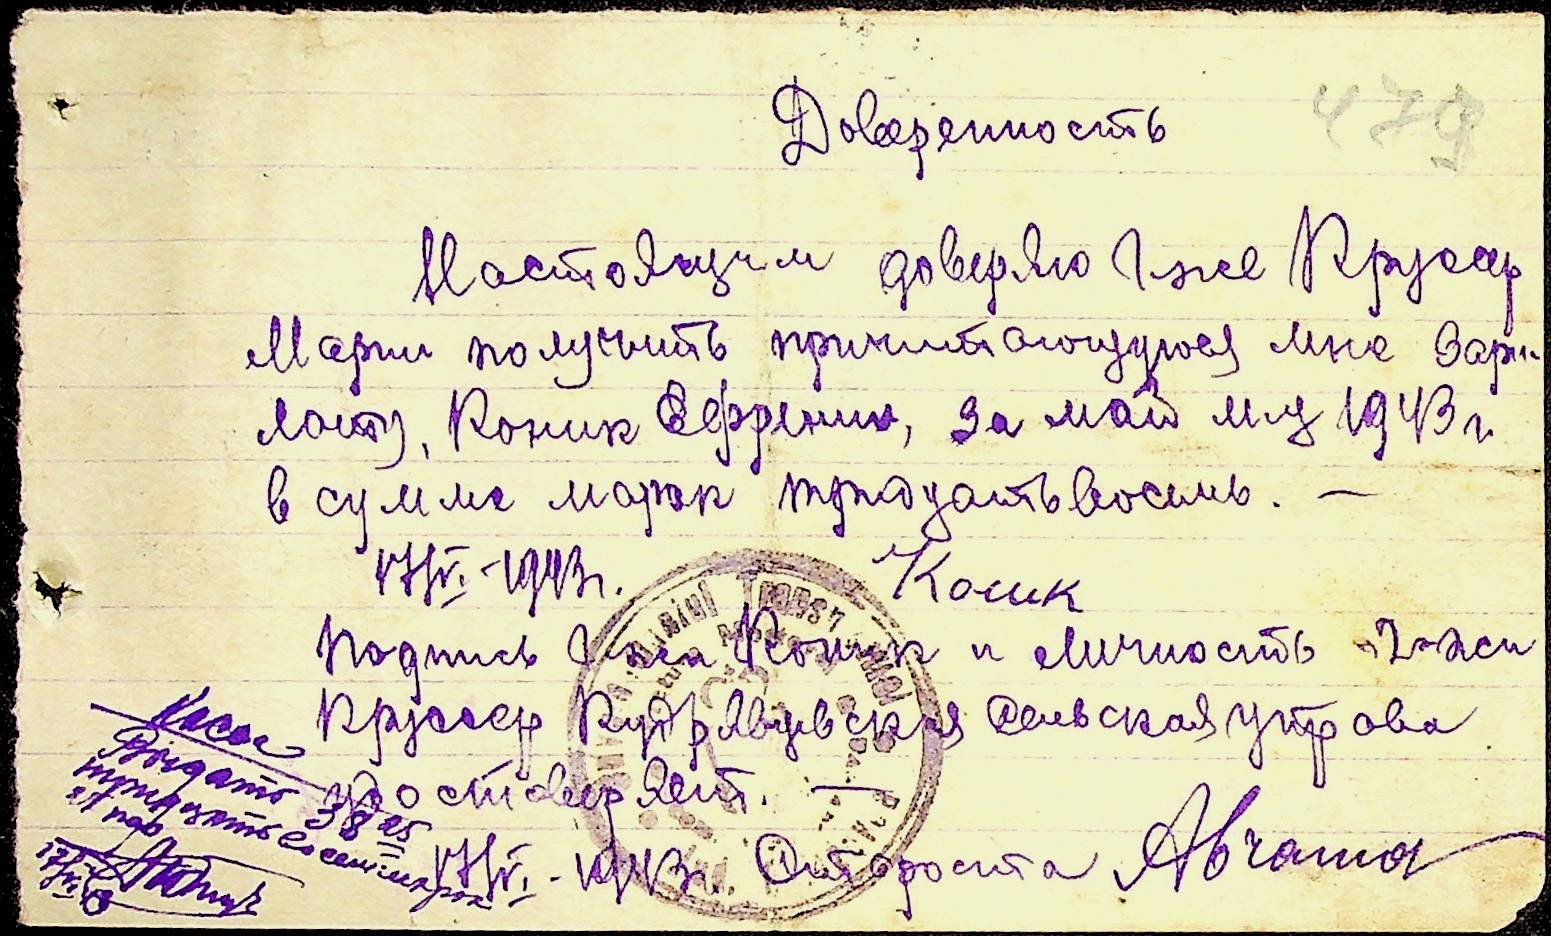 479
Доверенность
Настоящим доверяю г-же Крусер
Марии получить причитающуюся мне зарп-
лату, Коник Ефрении, за май м-ц 1943 г
в сумме марок тридцать восемь. —
17/VI.-1943 г. Коник
Подпись г-жи Коник и личность г-жи
Крусер Кудрявцевская сельская управа
удостоверяет. —
17/VI.-1943 г. Староста
Касса
Выдать 38
тридцать восемь марок
17/VI